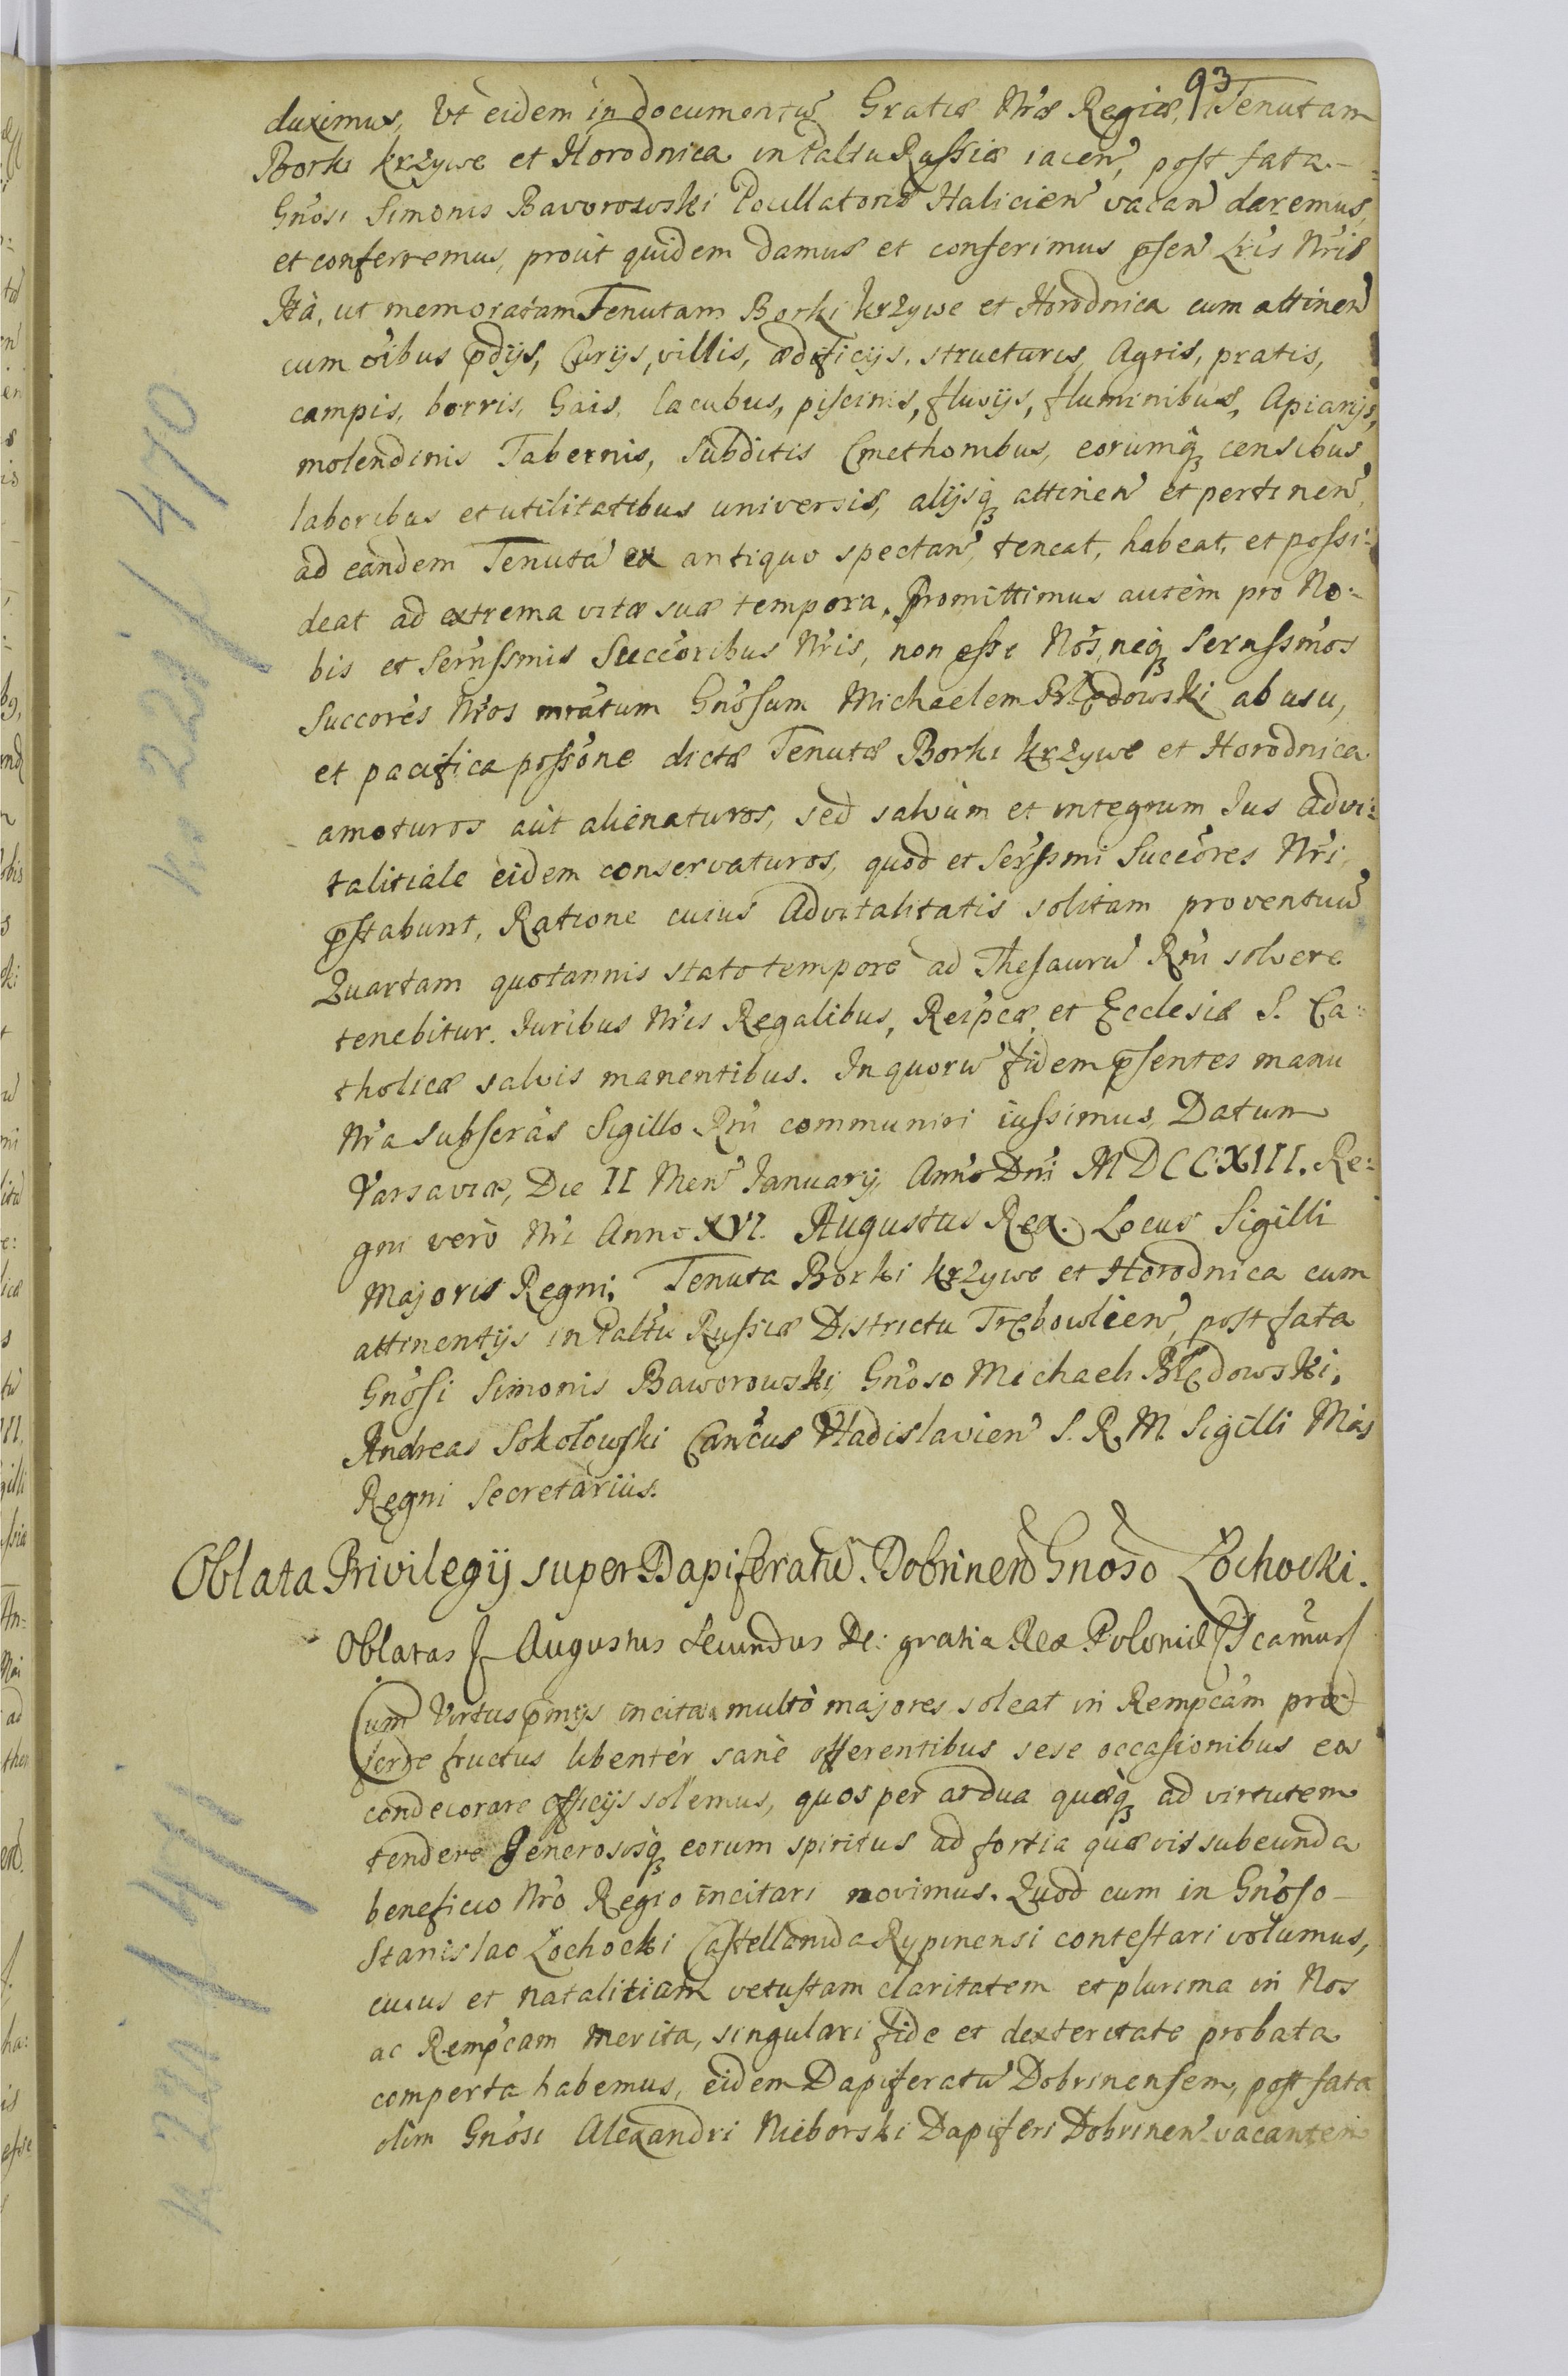 93
duximus, Ut eidem in documentũ Gratiæ Nr̃æ Regiæ, Tenutam
Borki krzywe et Horodnica in Paltu Russiæ iacen̄, post fata
Gnosi Simonis Baworowski Pocillatoris Halicien̄ vacan̄ daremus,
et conferremus, prout quidem damus et conferimus p̃sen̄ Lr̃is Nr̃is
Ità, ut memoratam Tenutam Borki krzywe et Horodnica cum attinen̄
cum oĩbus p̃dijs, Curijs, villis, ædificijs, structuris, Agris, pratis,
campis, borris, Gais, lacubus, piscinis, fluvijs, fluminibus, Apiarijs,
molendinis Tabernis, Subditis Cmethonibus, eorumq̃ censibus
laboribus et utilitatibus universis, alijsq̃ attinen̄ et pertinen̄,
ad eandem Tenutã ex antiquo spectan̄, teneat, habeat, et possi:
deat ad extrema vitæ suæ tempora. Promittimus autèm pro No:
bis et Serñssmis Succõribus Nr̃is, non esse Nos, neq̃ Serñssmos
Succorẽs Nr̃os mr̃atum Gnosum Michaelem Błędowski ab usu,
et pacifica possõne dictæ Tenutæ Borki krzywe et Horodnica
amoturos aut alienaturos, sed salvum et integrum Jus advi:
talitiale eidem conservaturos, quod et Serssmi Succõres Nr̃i
p̃stabunt, Ratione cuius Advitalitatis solitam proventuũ
Quartam quotannis stato tempore ad Thesaurũ Rñi solvere
tenebitur. Juribus Nr̃is Regalibus, Reip̃cæ, et Ecclesiæ S. Ca:
tholicæ salvis manentibus. In quorũ fidem p̃sentes manu
Nr̃a subscr̃as Sigillo Rñi communiri iussimus, Datum
Varsaviæ, Die II Men̄ January, Anno Dñi MDCCXIII. Re:
gni verò Nr̃i Anno XVI. Augustus Rex. Locus Sigilli
Majoris Regni; Tenuta Borki krzywe et Horodnica cum
attinentijs in Paltu Russiæ Districtu Trębowlien̄, post fata
Gnosi Simonis Baworowski, Gnoso Michaeli Błędowski.
Andreas Sokołowski Cancus Vladislavien̄ S. R. M. Sigilli Mãis
Regni Secretarius.
Oblata Privilegij super Dapiferatũ Dobrinen̄ Gnoso Łochocki.
Oblatas ſ Augustus Secundus Dei gratia Rex Poloniæ
Cum Virtus p̃mijs incitata multò majores soleat in Rempc̃am præ
ferre fructus libentèr sanè offerentibus sese occasionibus eos
condecorare officijs solemus, quos per ardua quæq̃ ad virtutem
tendere Generososq̃ eorum spiritus ad fortia quævis subeunda
beneficio Nr̃o Regio incitari novimus. Quod cum in Gnoso
Stanislao Łochocki Castellanida Rypinensi contestari volumus,
cuius et natalitiam vetustam claritatem et plurima in Nos
ac Rempc̃am merita, singulari fide et dexteritate probata
comperta habemus, eidem Dapiferatũ Dobrinensem, post fata
olim Gnosi Alexandri Nieborski Dapiferi Dobrinen̄ vacantem